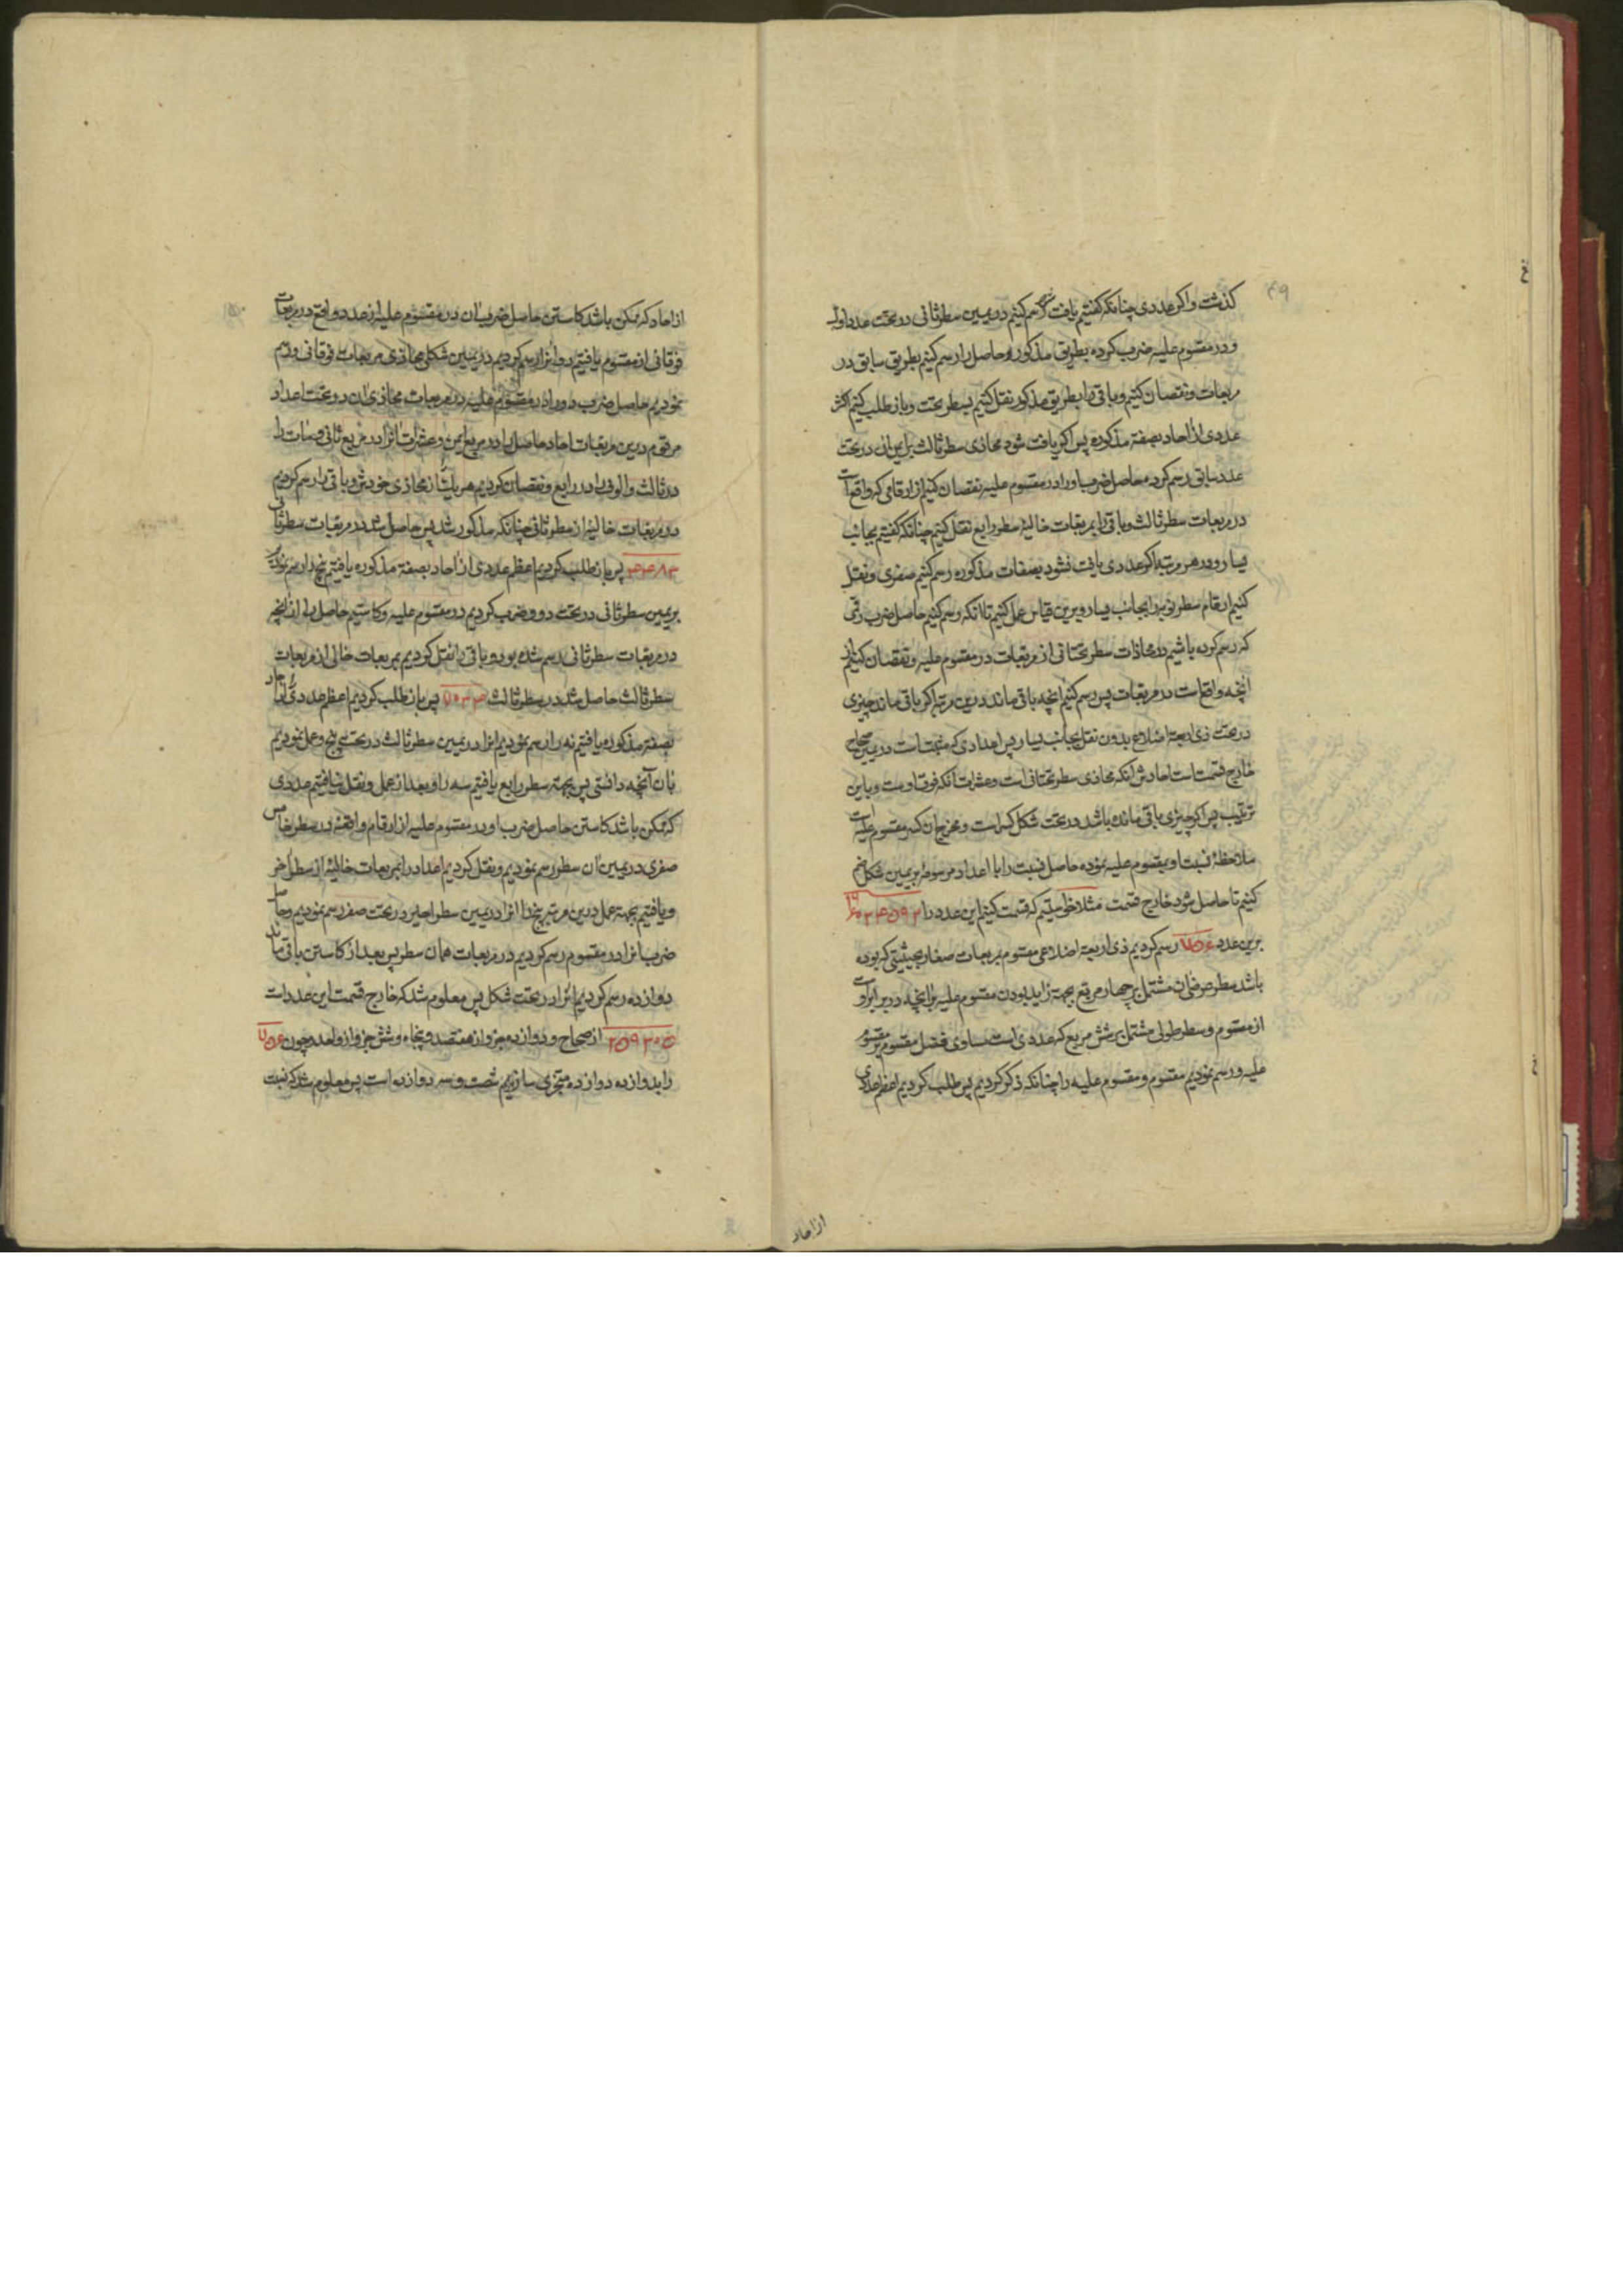 کذشت واکر عددی چنانکه کفتیم یافت رسم کنیم در یمین سطر ثانی در تحت عدد اول
و در مقسوم علیه ضرب کرده بطریق مذکور و حاصل را رسم کنیم بطریق سابق در
مربعات و نقصان کنیم و باقی را بطریق مذکور نقل کنیم بسطر تحت و باز طلب کنیم اکثر
عددی از احاد بصفة مذکوره پس اکر یافت شود محاذی سطر ثالث بر یمین ان در تحت
عدد سابق رسم کرده حاصل ضرب او را در مقسوم علیه نقصان کنیم از ارقامی که واقعست
در مربعات سطر ثالث و باقی را بمربعات خالیهٔ سطر رابع نقل کنیم چنانکه کفتیم بجانب
یسار و در هر مرتبه اکر عددی یافت نشود بصفات مذکوره رسم کنیم صفری و نقل
کنیم ارقام سطر نو را بجانب یسار و برین قیاس عمل کنیم تا انکه رسم کنیم حاصل ضرب رقمی
که رسم کرده باشیم در محاذات سطر تحتانی از مربعات در مقسوم علیه و نقصان کنیم از
آنچه واقعست در مربعات پس رسم کنیم آنچه باقی ماند درین مرتبه اکر باقی ماند چیزی
در تحت ذی اربعة اضلاع بدون نقل بجانب یسار پس اعدادی که مثبت است در یمین صحاح
خارج قسمت است احادش آنکه محاذی سطر تحتانی است و عشرات آنکه فوق اوست و باین
ترتیب پس اکر چیزی باقی مانده باشد در تحت شکل کسر است و مخرج ان که مقسوم علیه است
ملاحظهٔ نسبت او بمقسوم علیه نموده حاصل نسبت را با اعداد مرسومهٔ بر یمین شکل ضم
کنیم تا حاصل شود خارج قسمت مثلا خواستیم که قسمت کنیم این عدد را
برین عدد ۷۵۶ رسم کردیم ذی اربعة اضلاعی مقسوم بمربعات صغار بحیثیتی که بوده
باشد سطر عرضی ان مشتمل بر چهار مربع بجهة زاید بودن مقسوم علیه بر آنچه در برابر اوست
از مقسوم و سطر طولی مشتمل بر شش مربع که عددی است مساوی فضل مقسوم بر مقسوم
علیه و رسم نمودیم مقسوم و مقسوم علیه را چنانکه ذکر کردیم پس طلب کردیم اعظم عددی
از احاد
از احاد که ممکن باشد کاستن حاصل ضرب ان در مقسوم علیه از عدد واقع در مربعات
فوقانی از مقسوم یافتیم دو انرا رسم کردیم در یمین شکل محاذی مربعات فوقانی و رسم
نمودیم حاصل ضرب دو را در مقسوم علیه در مربعات محاذی ان در تحت اعداد
مرقوم درین مربعات احاد حاصل را در مربع ایمن و عشرات انرا در مربع ثانی و مئات را
در ثالث و الوف را در رابع و نقصان کردیم هر یک را از محاذی خودش و باقی را رسم کردیم
در مربعات خالیهٔ از سطر ثانی چنانکه مذکور شد پس حاصل شد در مربعات سطر ثانی
پس باز طلب کردیم اعظم عددی از احاد بصفة مذکوره یافتیم پنج را رسم نمودیم
بر یمین سطر ثانی در تحت دو و ضرب کردیم در مقسوم علیه و کاستیم حاصل را از آنچه
در مربعات سطر ثانی رسم شده بود و باقی را نقل کردیم بمربعات خالی از مربعات
سطر ثالث حاصل شد در سطر ثالث پس باز طلب کردیم اعظم عددی از احاد
بصفة مذکوره یافتیم نه را رسم نمودیم انرا در یمین سطر ثالث در تحت پنج و عمل نمودیم
بان آنچه دانستی پس بجهة سطر رابع یافتیم سه را و بعد از عمل و نقل نیافتیم عددی
که ممکن باشد کاستن حاصل ضرب او در مقسوم علیه از ارقام واقعهٔ در سطر خامس
صفری در یمین ان سطر رسم نمودیم و نقل کردیم اعداد را بمربعات خالیهٔ از سطر اخر
و یافتیم بجهة عمل درین مرتبه پنج را انرا در یمین سطر اخیر در تحت صفر رسم نمودیم و حاصل
ضرب انرا در مقسوم رسم کردیم در مربعات همان سطر پس بعد از کاستن باقی ماند
دوازده رسم کردیم انرا در تحت شکل پس معلوم شد که خارج قسمت این عدد است
۲۵۹۳۰۵ از صحاح و دوازده جزو از هفتصد و پنجاه و شش جزو از واحد و چون ۷۵۶
را بدوازده دوازده متجزی سازیم شصت و سه دوازده است پس معلوم شد که نسبت